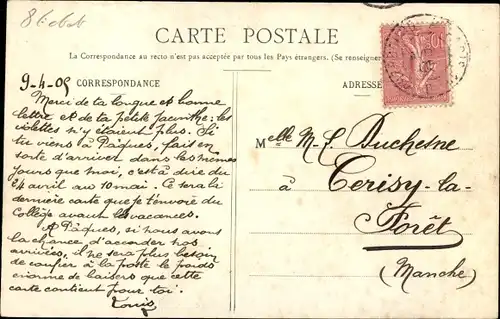 CARTE POSTALE
La Correspondance au recto n'est pas acceptée par tous les Pays étrangers. (Se renseigner
CORRESPONDANCE
ADRESSE
9-4-05
Merci de ta longue et bonne
lettre et de ta petite jacinthe: les
violettes n'y étaient plus. Si
tu viens à Pâques, fais en
sorte d'arriver dans les mêmes
jours que moi, c'est à dire du
avril au 10 mai. Ce sera la
dernière carte que je t'envoie du
Collège avant les vacances.
A Pâques, si nous avons
la chance d'accorder nos
arrivées, il ne sera plus besoin
de confier à la poste le poids
énorme de baisers que cette
carte contient pour toi.
Louis
Melle M-L Duchesne
à Cerisy-la-
Forêt
(Manche)